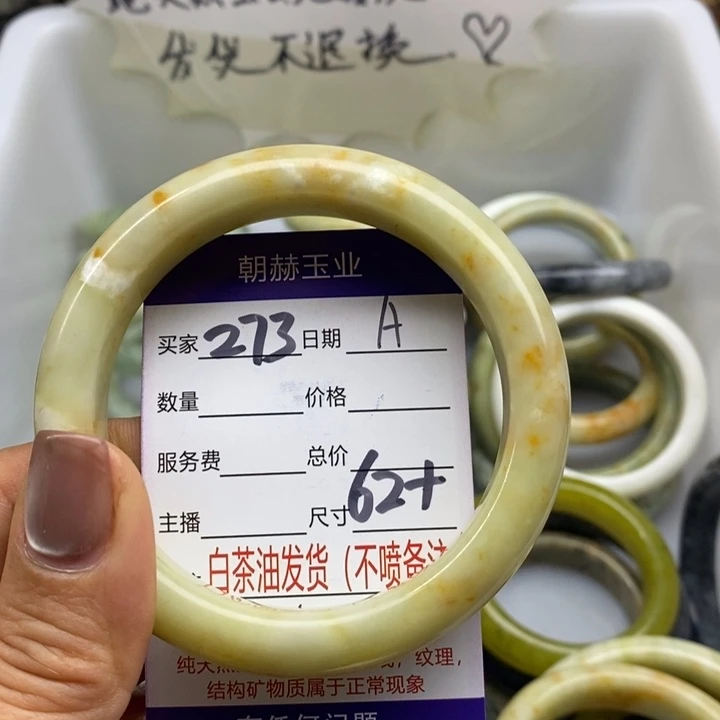 发货不退换
朝赫玉业
买家 273 日期 A
数量 价格
服务费 总价
主播 尺寸 62+
白茶油发货（不喷备注
纯天然 纹理，
结构矿物质属于正常现象